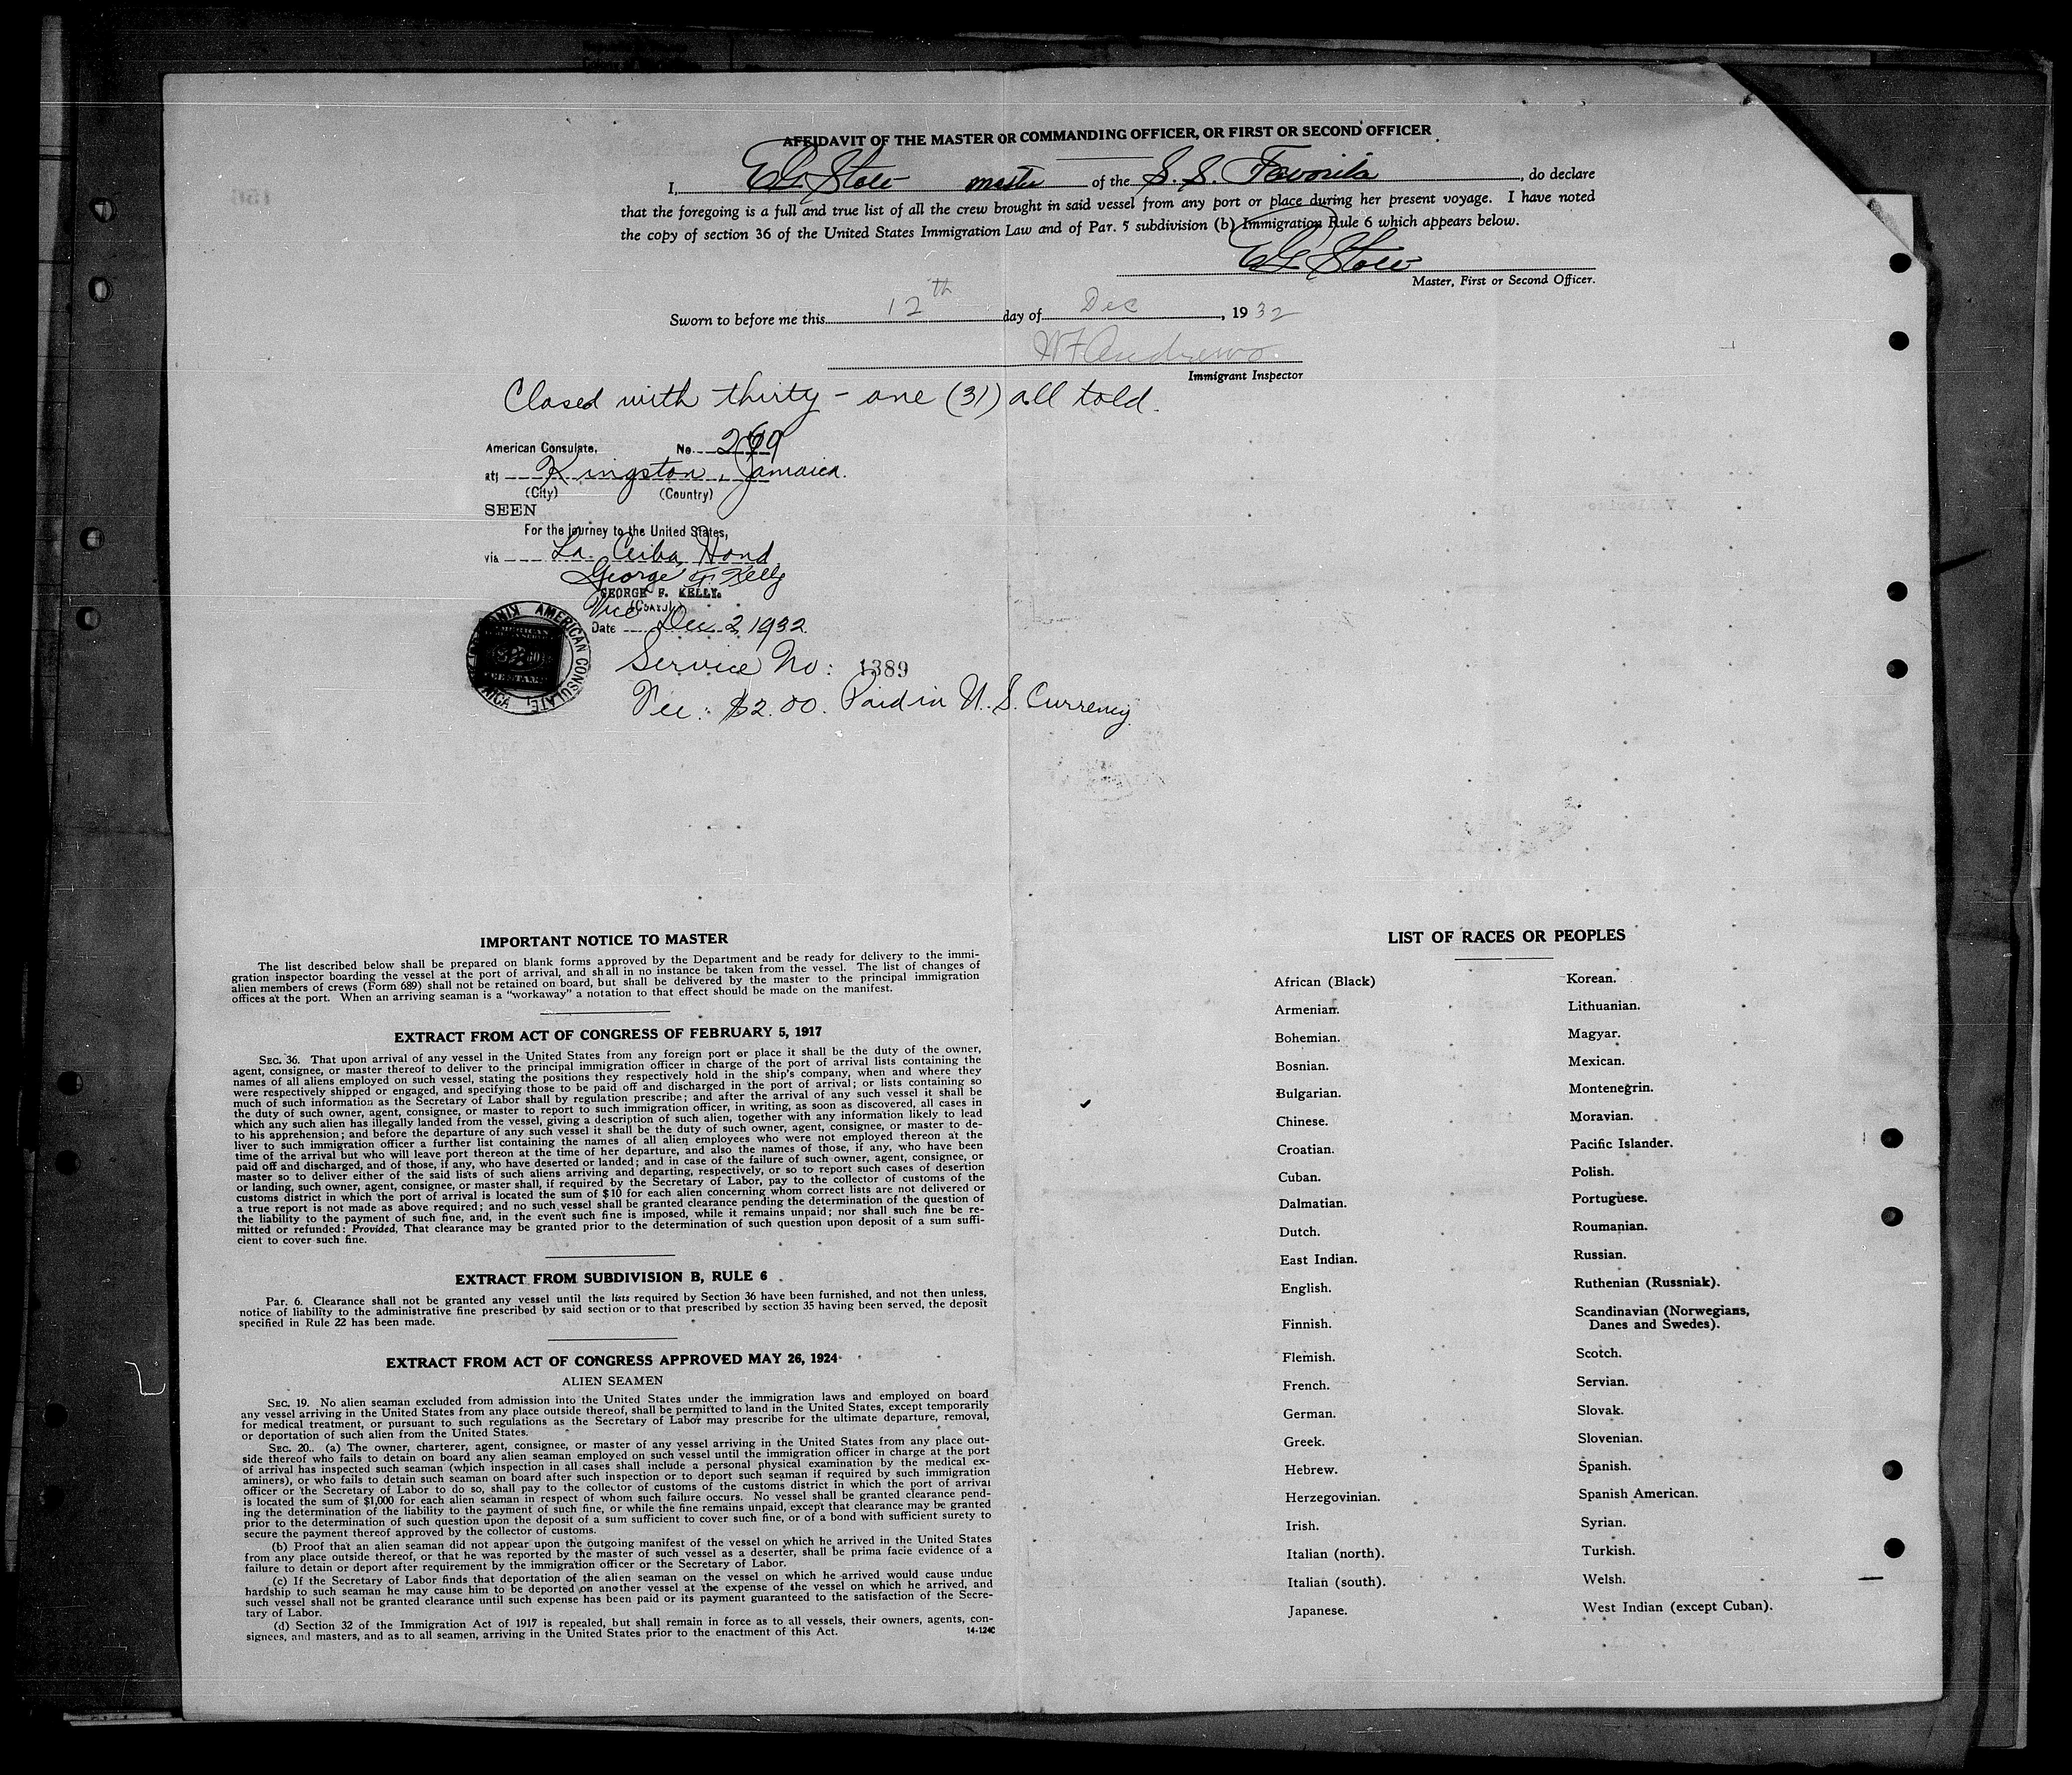 AFFIDAVIT OF THE MASTER OR COMMANDING OFFICER, OR FIRST OR SECOND OFFICER
I, E.G. Stole master of the S. S. Favorita, do declare
that the foregoing is a full and true list of all the crew brought in said vessel from any port or place during her present voyage. I have noted
the copy of section 36 of the United States Immigration Law and of Par. 5 subdivision (b) Immigration Rule 6 which appears below.
Master, First or Second Officer.
Sworn to before me this 12th day of Dec, 1932
W F Andrews
Immigrant Inspector
Closed with thirty-one (31) all told.
American Consulate, No.
at: Kingston, Jamaica.
(City) (Country)
SEEN
For the journey to the United States,
via La Ceiba, Hond
George F. Kelly
GEORGE F. KELLY.
Vice
Date Dec. 2, 1932.
AMERICAN CONSULATE,
Service No: 1389
Fee: $2.00. Paid in U. S. Currency.
IMPORTANT NOTICE TO MASTER
The list described below shall be prepared on blank forms approved by the Department and be ready for delivery to the immi-
gration inspector boarding the vessel at the port of arrival, and shall in no instance be taken from the vessel. The list of changes of
alien members of crews (Form 689) shall not be retained on board, but shall be delivered by the master to the principal immigration
offices at the port. When an arriving seaman is a "workaway" a notation to that effect should be made on the manifest.
EXTRACT FROM ACT OF CONGRESS OF FEBRUARY 5, 1917
SEC. 36. That upon arrival of any vessel in the United States from any foreign port or place it shall be the duty of the owner,
agent, consignee, or master thereof to deliver to the principal immigration officer in charge of the port of arrival lists containing the
names of all aliens employed on such vessel, stating the positions they respectively hold in the ship's company, when and where they
were respectively shipped or engaged, and specifying those to be paid off and discharged in the port of arrival; or lists containing so
much of such information as the Secretary of Labor shall by regulation prescribe; and after the arrival of any such vessel it shall be
the duty of such owner, agent, consignee, or master to report to such immigration officer, in writing, as soon as discovered, all cases in
which any such alien has illegally landed from the vessel, giving a description of such alien, together with any information likely to lead
to his apprehension; and before the departure of any such vessel it shall be the duty of such owner, agent, consignee, or master to de-
liver to such immigration officer a further list containing the names of all alien employees who were not employed thereon at the
time of the arrival but who will leave port thereon at the time of her departure, and also the names of those, if any, who have been
paid off and discharged, and of those, if any, who have deserted or landed; and in case of the failure of such owner, agent, consignee, or
master so to deliver either of the said lists of such aliens arriving and departing, respectively, or so to report such cases of desertion
or landing, such owner, agent, consignee, or master shall, if required by the Secretary of Labor, pay to the collector of customs of the
customs district in which the port of arrival is located the sum of $10 for each alien concerning whom correct lists are not delivered or
a true report is not made as above required; and no such vessel shall be granted clearance pending the determination of the question of
the liability to the payment of such fine, and, in the event such fine is imposed, while it remains unpaid; nor shall such fine be re-
mitted or refunded: Provided, That clearance may be granted prior to the determination of such question upon deposit of a sum suffi-
cient to cover such fine.
EXTRACT FROM SUBDIVISION B, RULE 6
Par. 6. Clearance shall not be granted any vessel until the lists required by Section 36 have been furnished, and not then unless,
notice of liability to the administrative fine prescribed by said section or to that prescribed by section 35 having been served, the deposit
specified in Rule 22 has been made.
EXTRACT FROM ACT OF CONGRESS APPROVED MAY 26, 1924
ALIEN SEAMEN
SEC. 19. No alien seaman excluded from admission into the United States under the immigration laws and employed on board
any vessel arriving in the United States from any place outside thereof, shall be permitted to land in the United States, except temporarily
for medical treatment, or pursuant to such regulations as the Secretary of Labor may prescribe for the ultimate departure, removal,
or deportation of such alien from the United States.
SEC. 20. (a) The owner, charterer, agent, consignee, or master of any vessel arriving in the United States from any place out-
side thereof who fails to detain on board any alien seaman employed on such vessel until the immigration officer in charge at the port
of arrival has inspected such seaman (which inspection in all cases shall include a personal physical examination by the medical ex-
aminers), or who fails to detain such seaman on board after such inspection or to deport such seaman if required by such immigration
officer or the Secretary of Labor to do so, shall pay to the collector of customs of the customs district in which the port of arrival
is located the sum of $1,000 for each alien seaman in respect of whom such failure occurs. No vessel shall be granted clearance pend-
ing the determination of the liability to the payment of such fine, or while the fine remains unpaid, except that clearance may be granted
prior to the determination of such question upon the deposit of a sum sufficient to cover such fine, or of a bond with sufficient surety to
secure the payment thereof approved by the collector of customs.
(b) Proof that an alien seaman did not appear upon the outgoing manifest of the vessel on which he arrived in the United States
from any place outside thereof, or that he was reported by the master of such vessel as a deserter, shall be prima facie evidence of a
failure to detain or deport after requirement by the immigration officer or the Secretary of Labor.
(c) If the Secretary of Labor finds that deportation of the alien seaman on the vessel on which he arrived would cause undue
hardship to such seaman he may cause him to be deported on another vessel at the expense of the vessel on which he arrived, and
such vessel shall not be granted clearance until such expense has been paid or its payment guaranteed to the satisfaction of the Secre-
tary of Labor.
(d) Section 32 of the Immigration Act of 1917 is repealed, but shall remain in force as to all vessels, their owners, agents, con-
signees, and masters, and as to all seamen, arriving in the United States prior to the enactment of this Act.
14-124C
LIST OF RACES OR PEOPLES
African (Black)
Armenian.
Bohemian.
Bosnian.
Bulgarian.
Chinese.
Croatian.
Cuban.
Dalmatian.
Dutch.
East Indian.
English.
Finnish.
Flemish.
French.
German.
Greek.
Hebrew.
Herzegovinian.
Irish.
Italian (north).
Italian (south).
Japanese.
Korean.
Lithuanian.
Magyar.
Mexican.
Montenegrin.
Moravian.
Pacific Islander.
Polish.
Portuguese.
Roumanian.
Russian.
Ruthenian (Russniak).
Scandinavian (Norwegians,
Danes and Swedes).
Scotch.
Servian.
Slovak.
Slovenian.
Spanish.
Spanish American.
Syrian.
Turkish.
Welsh.
West Indian (except Cuban).